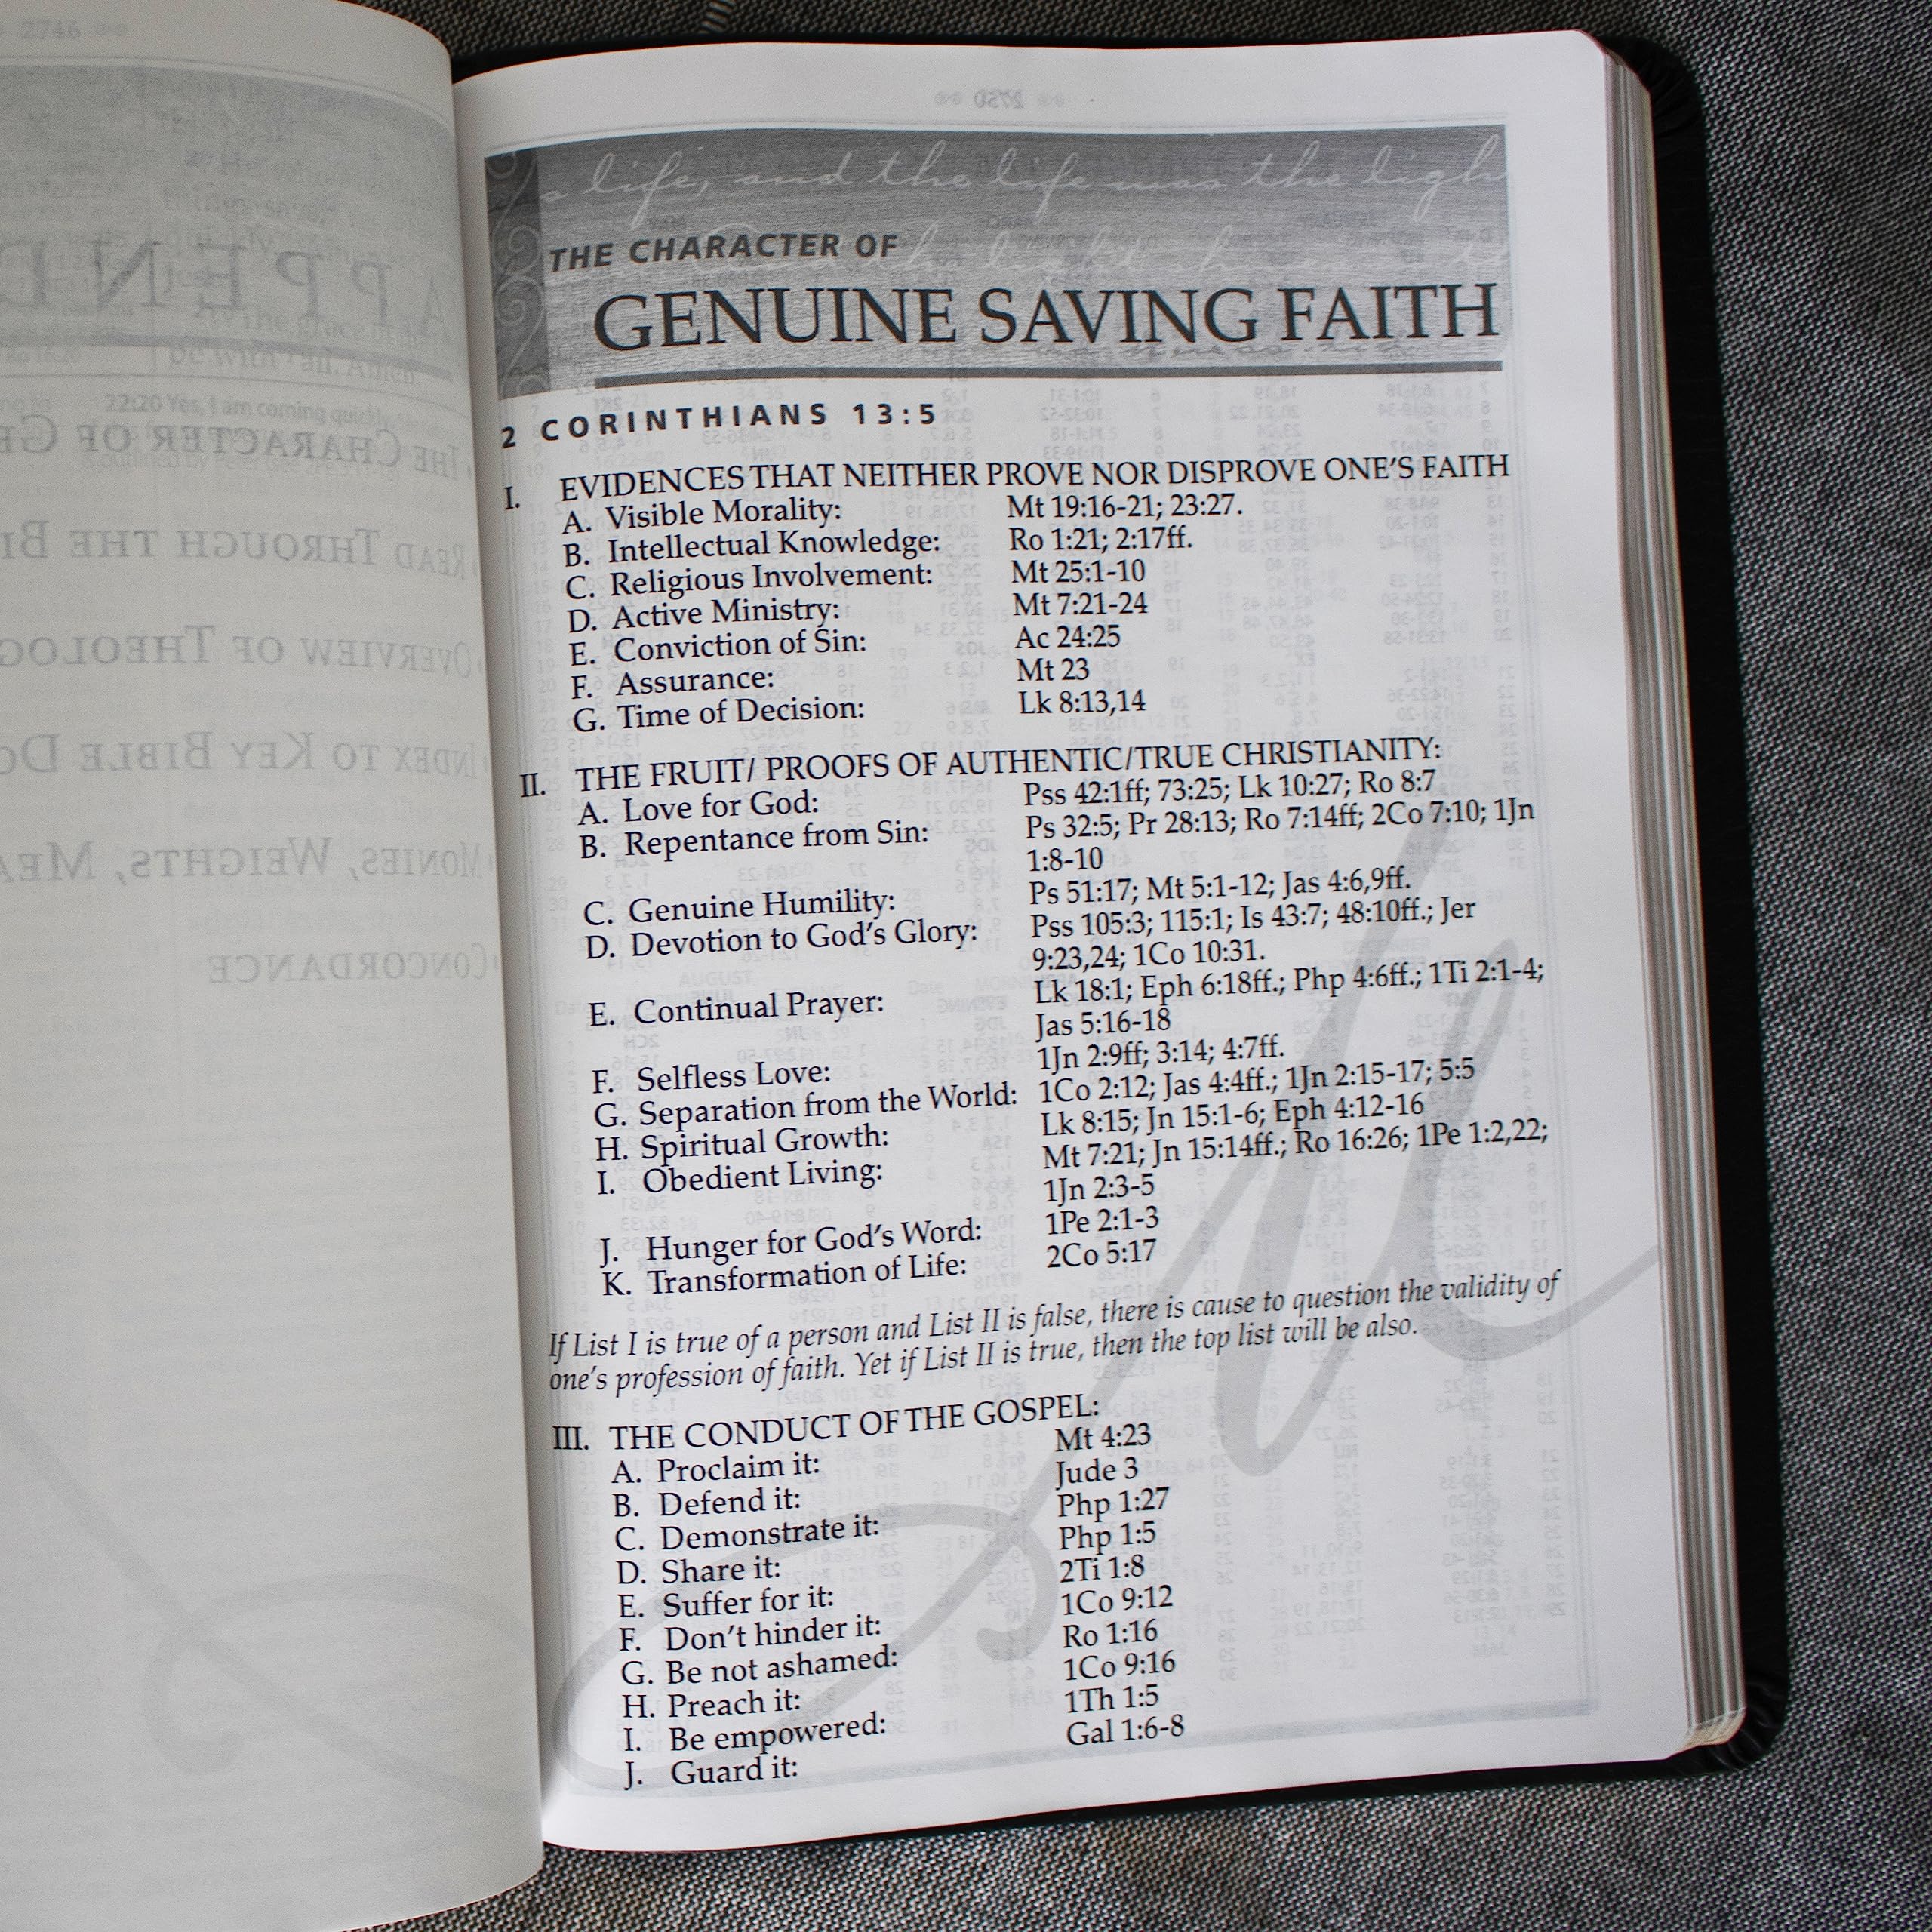 2746
APPEND
THE CHARACTER OF GE
READ THROUGH THE BI
OVERVIEW OF THEOLOG
INDEX TO KEY BIBLE DO
MONIES, WEIGHTS, MEA
CONCORDANCE
be with all. Amen.
22:20 Yes, I am coming quickly
2750
s life, and the life was the ligh
THE CHARACTER OF
GENUINE SAVING FAITH
2 CORINTHIANS 13:5
I. EVIDENCES THAT NEITHER PROVE NOR DISPROVE ONE'S FAITH
A. Visible Morality: Mt 19:16-21; 23:27.
B. Intellectual Knowledge: Ro 1:21; 2:17ff.
C. Religious Involvement: Mt 25:1-10
D. Active Ministry: Mt 7:21-24
E. Conviction of Sin: Ac 24:25
F. Assurance: Mt 23
G. Time of Decision: Lk 8:13,14
II. THE FRUIT/ PROOFS OF AUTHENTIC/TRUE CHRISTIANITY:
A. Love for God: Pss 42:1ff; 73:25; Lk 10:27; Ro 8:7
B. Repentance from Sin: Ps 32:5; Pr 28:13; Ro 7:14ff; 2Co 7:10; 1Jn
1:8-10
C. Genuine Humility: Ps 51:17; Mt 5:1-12; Jas 4:6,9ff.
D. Devotion to God's Glory: Pss 105:3; 115:1; Is 43:7; 48:10ff.; Jer
9:23,24; 1Co 10:31.
E. Continual Prayer: Lk 18:1; Eph 6:18ff.; Php 4:6ff.; 1Ti 2:1-4;
Jas 5:16-18
F. Selfless Love: 1Jn 2:9ff; 3:14; 4:7ff.
G. Separation from the World: 1Co 2:12; Jas 4:4ff.; 1Jn 2:15-17; 5:5
H. Spiritual Growth: Lk 8:15; Jn 15:1-6; Eph 4:12-16
I. Obedient Living: Mt 7:21; Jn 15:14ff.; Ro 16:26; 1Pe 1:2,22;
1Jn 2:3-5
J. Hunger for God's Word: 1Pe 2:1-3
K. Transformation of Life: 2Co 5:17
If List I is true of a person and List II is false, there is cause to question the validity of
one's profession of faith. Yet if List II is true, then the top list will be also.
III. THE CONDUCT OF THE GOSPEL:
A. Proclaim it: Mt 4:23
B. Defend it: Jude 3
C. Demonstrate it: Php 1:27
D. Share it: Php 1:5
E. Suffer for it: 2Ti 1:8
F. Don't hinder it: 1Co 9:12
G. Be not ashamed: Ro 1:16
H. Preach it: 1Co 9:16
I. Be empowered: 1Th 1:5
J. Guard it: Gal 1:6-8